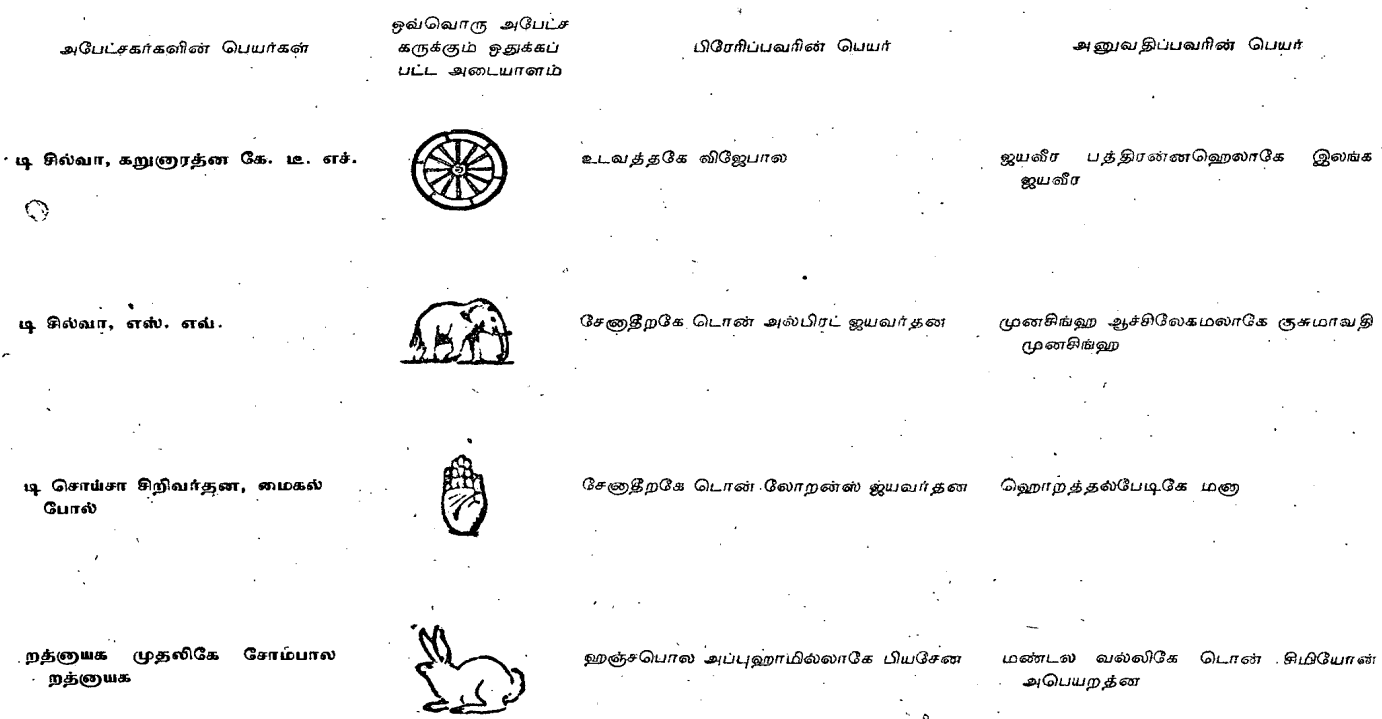 அபேட்சகர்களின் பெயர்கள்
ஒவ்வொரு அபேட்ச
கருக்கும் ஒதுக்கப்
பட்ட அடையாளம்
பிரேரிப்பவரின் பெயர்
அனுவதிப்பவரின் பெயர்
டி சில்வா, கறுணாரத்ன கே. டீ. எச்.
உடவத்தகே விஜேபால
ஜயவீர பத்திரன்னஹெலாகே இலங்க
ஜயவீர
டி சில்வா, எஸ். எவ்.
சேனாதீறகே டொன் அல்பிரட் ஜயவர்தன
முனசிங்ஹ ஆச்சிலேகமலாகே குசுமாவதி
முனசிங்ஹ
டி சொய்சா சிறிவர்தன, மைகல்
போல்
சேனாதீறகே டொன் லோறன்ஸ் ஜயவர்தன
ஹொறத்தல்பேடிகே மனா
றத்னாயக முதலிகே சோம்பால
றத்னாயக
ஹஞ்சபொல அப்புஹாமில்லாகே பியசேன
மண்டல வல்லிகே டொன் சிமியோன்
அபெயறத்ன